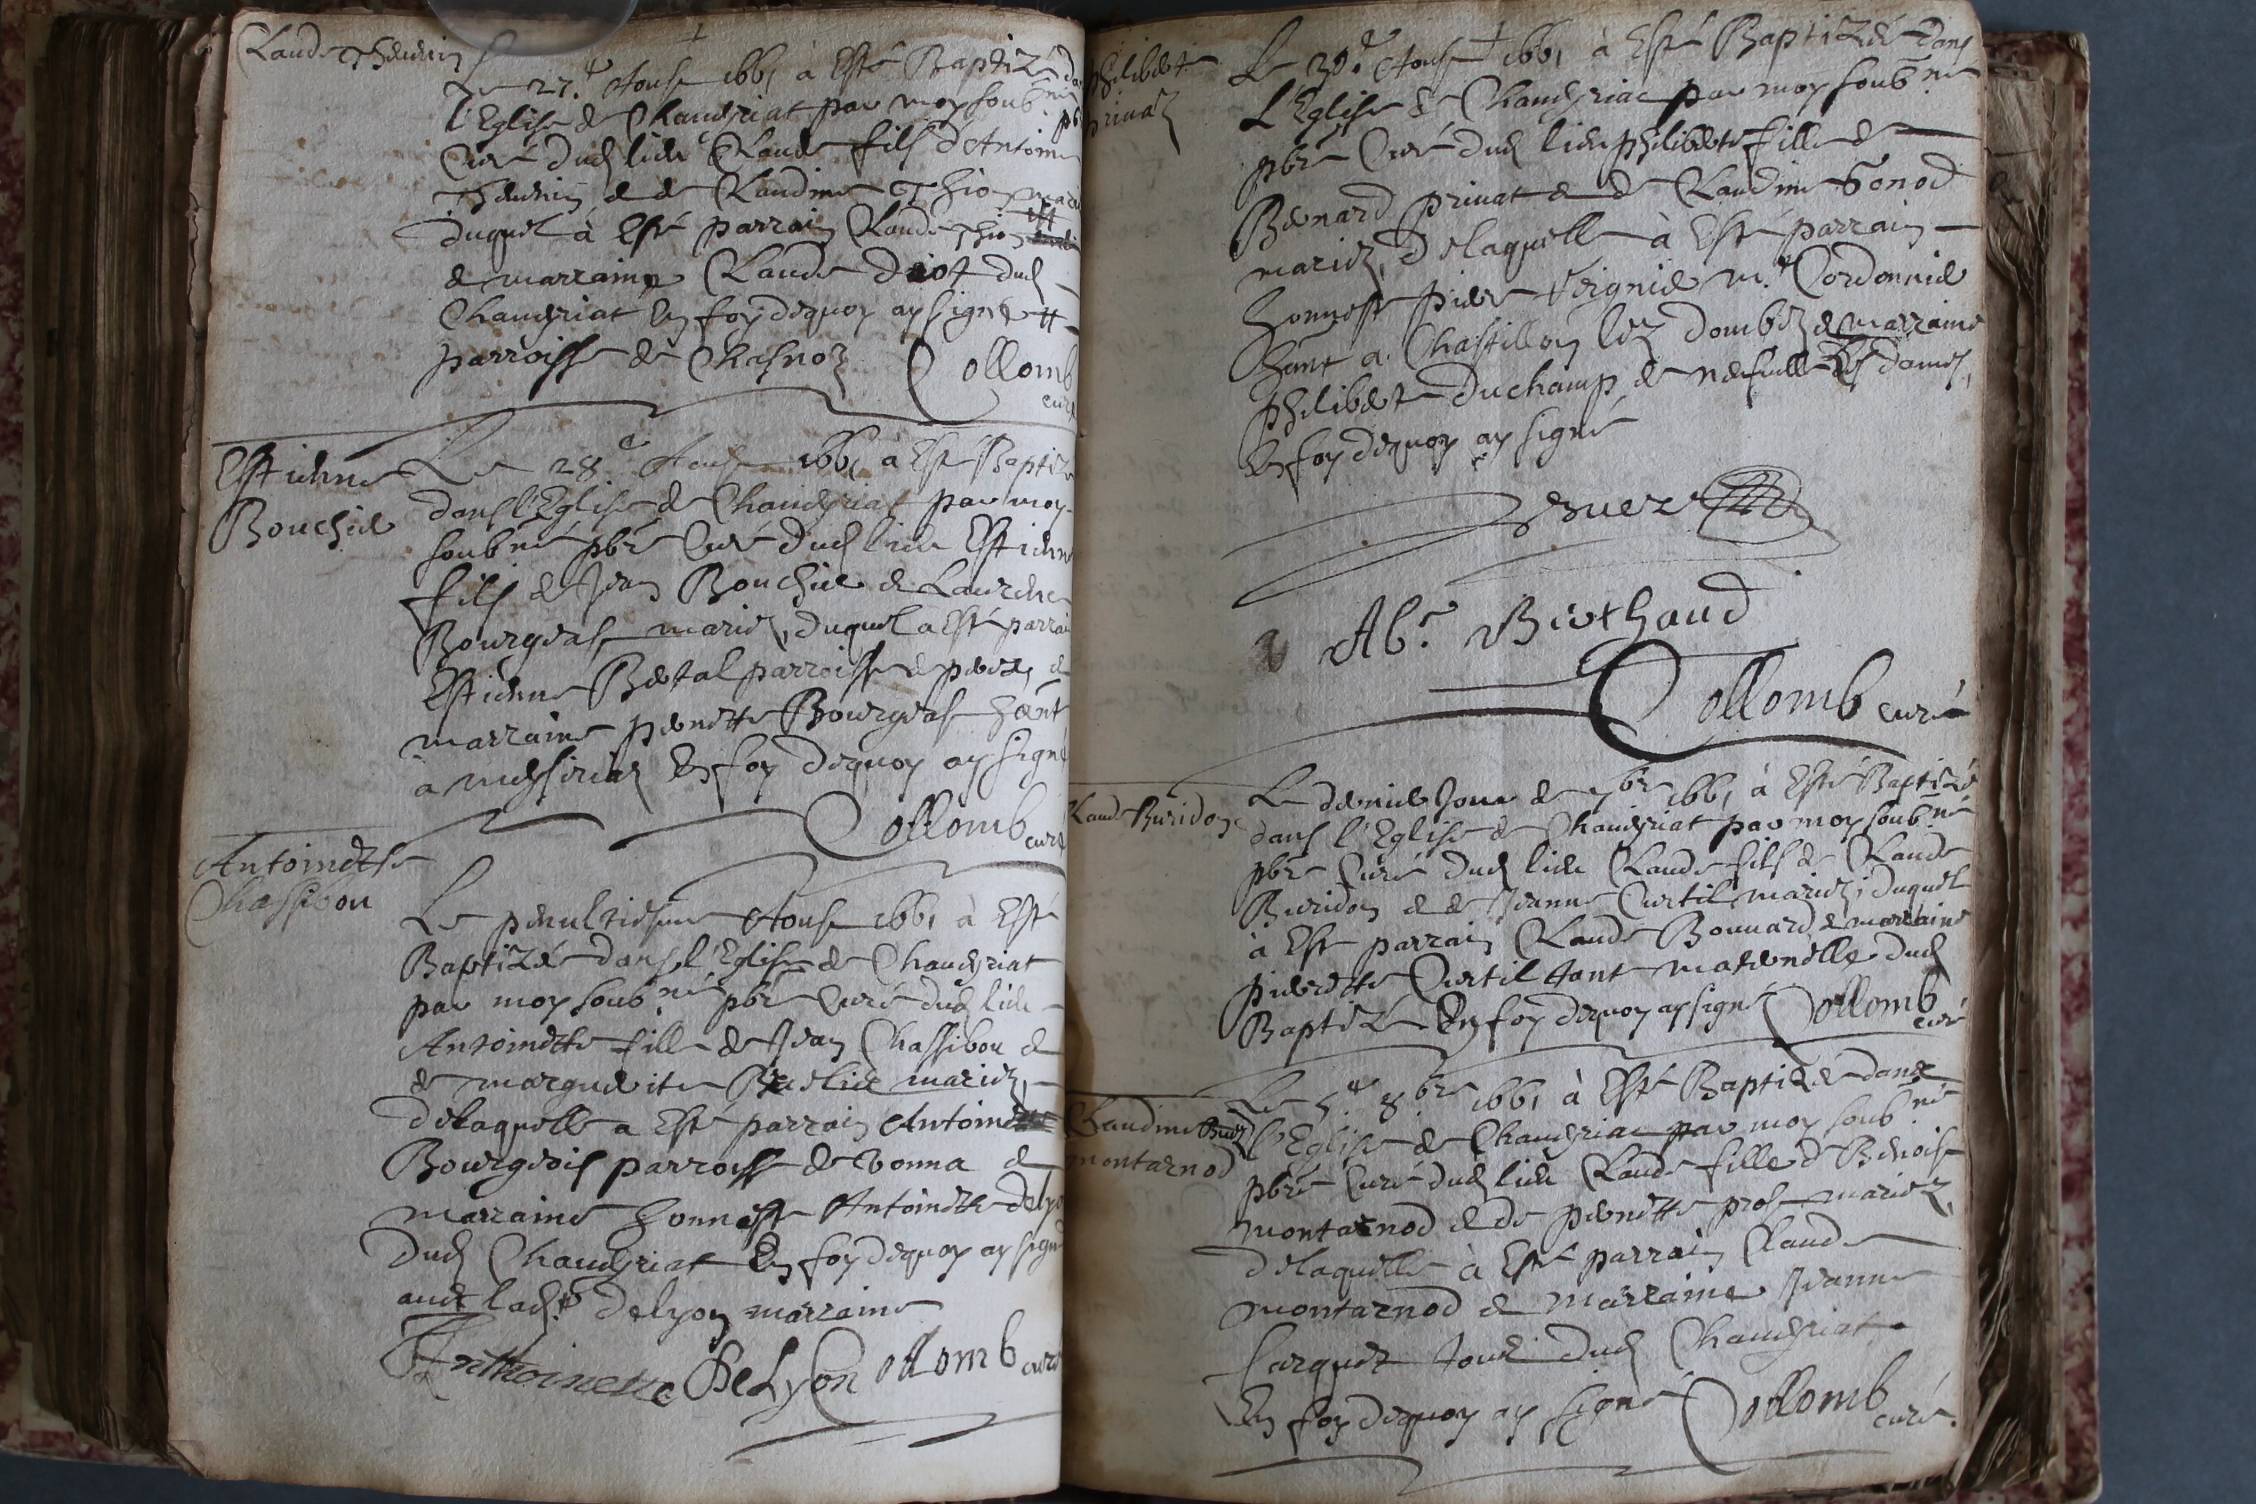 Claude Thevenin
Le 27.e Aoust 1661 à Esté Baptizé dans
l'Eglise de Chaveyriat par moy soub.né pbr
Curé dud lieu Claude fils d'Antoine
Thevenin & de Claudine Thion mariez
duquel à Esté parrain Claude Thion
& marraine Claude Driot dud
Chaveyriat En foy dequoy ay signé #
parroisse de Chasnoz Collomb
curé
Estienne
Bouchie
Le 28.e Aoust 1661 à Esté Baptizé
dans l'Eglise de Chaveyriat par moy
soub.né pbre Curé dud lieu Estienne
fils de Jean Bouchie & Laurence
Bourgeas mariez, duquel a Esté parrain
Estienne Bertal parroisse de perez, &
marraine pernette Bourgeas
à mesiriaz En foy dequoy ay signé
Collomb curé
Antoinette
Chassibou
Le penultiesme Aoust 1661 à Esté
Baptizée dans l'Eglise de Chaveyriat
par moy soub.né pbre Curé dud lieu
Antoinette fille de Jean Chassibou &
de marguerite mariez,
delaquelle a Esté parrain Antoine
Bourgeois parroisse de vonna &
marraine honneste Antoinette delyon
dud Chaveyriat En foy dequoy ay signé
avec lad.e delyon marraine
Anthoinette DeLyon Collomb curé
philiberte
privaz
Le 30.e Aoust 1661 à Esté Baptizée dans
L'Eglise de Chaveyriat par moy soub.né
pbre Curé dud lieu philiberte fille de
Bernard privat & de Claudine Gonod
mariez, delaquelle à Esté parrain
honneste piere m.e Cordonnie
à Chastillon lez dombez & marraine
philiberte Duchamp de neufville les dames,
En foy dequoy ay signé
Ab.e Berthaud
Collomb curé
Claude Buridon
Le dernie Jour de 7bre 1661 à Esté Baptizé
dans l'Eglise de Chaveyriat par moy soub.né
pbre Curé dud lieu Claude fils de Claude
Buridon & de Jeanne Curtil mariez, duquel
à Esté parrain Claude Bouvard & marraine
pierrette Curtil tant maternelle dud
Baptizé En foy dequoy ay signé Collomb
curé
Claudine
montarnod
Le 5.e 8bre 1661 à Esté Baptizée dans
l'Eglise de Chaveyriat par moy soub.né
pbre Curé dud lieu Claude fille de Benoist
montarnod & de pernette prost mariez,
delaquelle à Esté parrain Claude
montarnod & marraine Jeanne
Carquet tous dud Chaveyriat
En foy dequoy ay signé Collomb
curé.